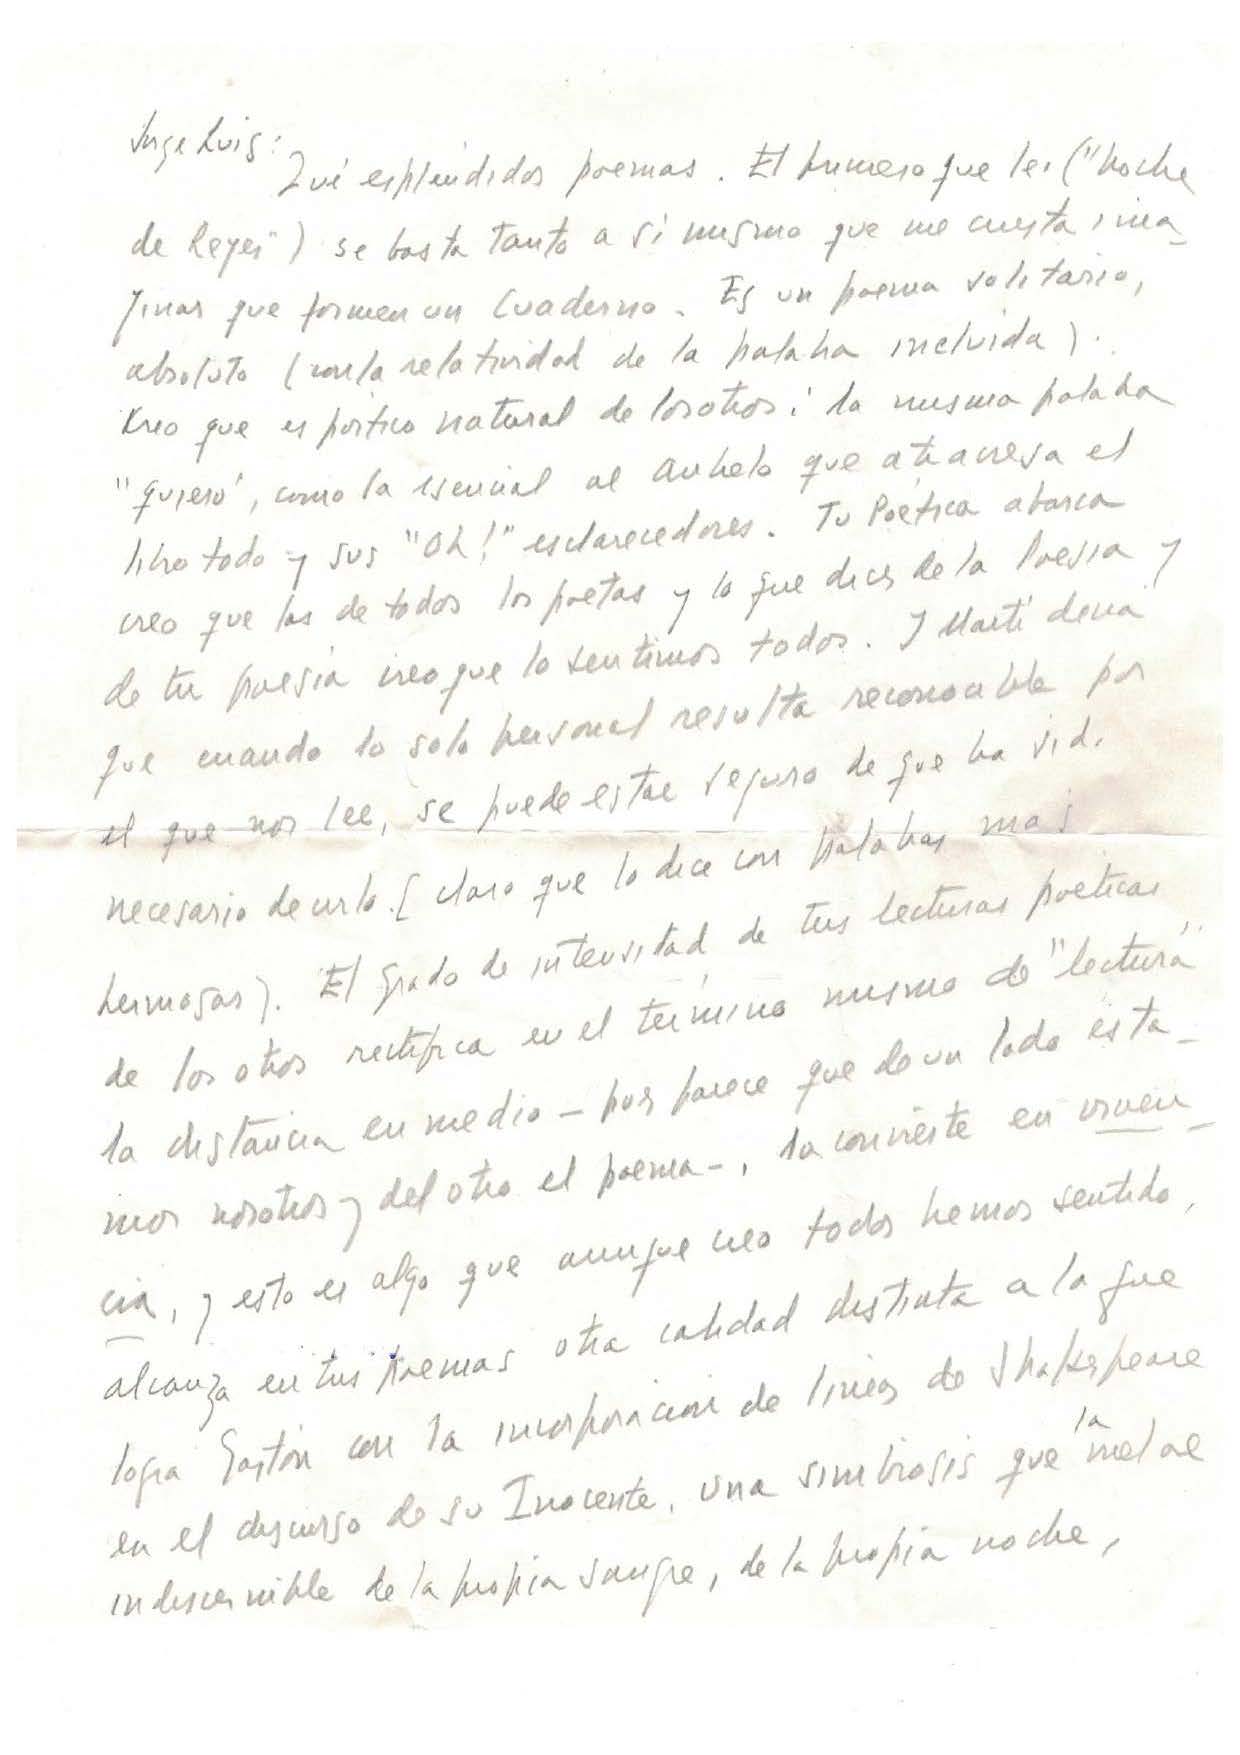 Jorge Luis:
Qué espléndidos poemas. El primero que leí ("Noche
de Reyes") se basta tanto a sí mismo que me cuesta ima-
ginar que formen un Cuaderno. Es un poema solitario,
absoluto (con la relatividad de la palabra incluida).
Creo que es pórtico natural de los otros: la misma palabra
"quiero", como la esencial al anhelo que atraviesa el
libro todo y sus "Oh!" esclarecedores. Tu Poética abarca
creo que las de todos los poetas y lo que dices de la Poesía y
de tu poesía creo que lo sentimos todos. Y Martí decía
que cuando lo solo personal resulta reconocible por
el que nos lee, se puede estar seguro de que ha sido
necesario decirlo. (Claro que lo dice con palabras más
hermosas). El grado de intensidad de tus lecturas poéticas
de los otros rectifica en el término mismo de "lectura"
la distancia en medio – pues parece que de un lado esta-
mos nosotros y del otro el poema –, la convierte en viven-
cia, y esto es algo que aunque creo todos hemos sentido,
alcanza en tus poemas otra calidad distinta a la que
logra Gastón con la incorporación de líneas de Shakespeare
en el discurso de su Inocente, una simbiosis que la
indiscernible de la propia sangre, de la propia noche,